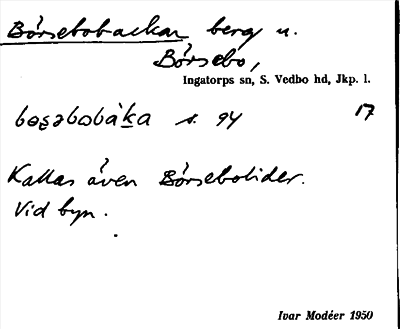 Börsebobackar berg u.
Börsebo,
Ingatorps sn, S. Vedbo hd, Jkp. l.
s. 94 17
Kallas även Börsebolider.
Vid byn.
Ivar Modéer 1950